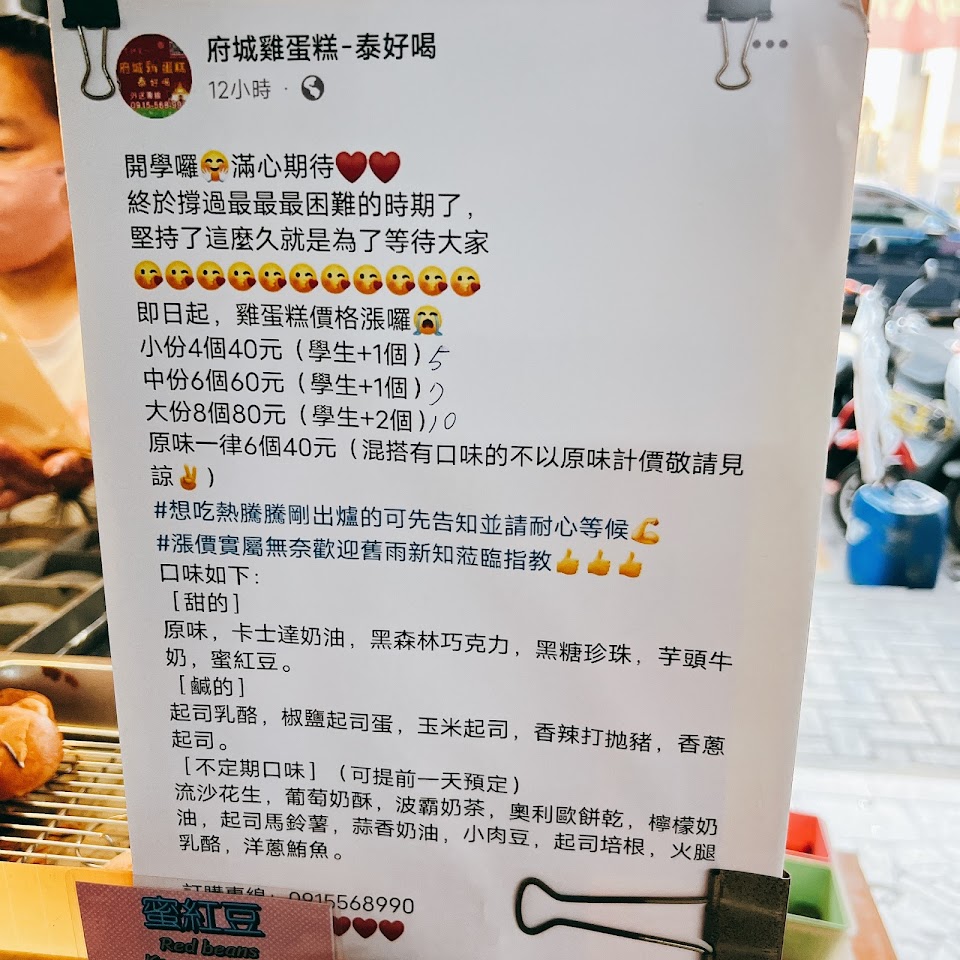 府城雞蛋糕-泰好喝
12小時 ·
府城雞蛋糕
泰好喝
外送專線
0915-568-990
開學囉🤗滿心期待❤️❤️
終於撐過最最最困難的時期了，
堅持了這麼久就是為了等待大家
😘😘😘😘😘😘😘😘😘😘😘
即日起，雞蛋糕價格漲囉😭
小份4個40元（學生+1個）5
中份6個60元（學生+1個）7
大份8個80元（學生+2個）10
原味一律6個40元（混搭有口味的不以原味計價敬請見
諒✌️）
#想吃熱騰騰剛出爐的可先告知並請耐心等候💪
#漲價實屬無奈歡迎舊雨新知蒞臨指教👍👍👍
口味如下：
［甜的］
原味，卡士達奶油，黑森林巧克力，黑糖珍珠，芋頭牛
奶，蜜紅豆。
［鹹的］
起司乳酪，椒鹽起司蛋，玉米起司，香辣打拋豬，香蔥
起司。
［不定期口味］（可提前一天預定）
流沙花生，葡萄奶酥，波霸奶茶，奧利歐餅乾，檸檬奶
油，起司馬鈴薯，蒜香奶油，小肉豆，起司培根，火腿
乳酪，洋蔥鮪魚。
訂購專線：0915568990
❤️❤️❤️
蜜紅豆
Red beans